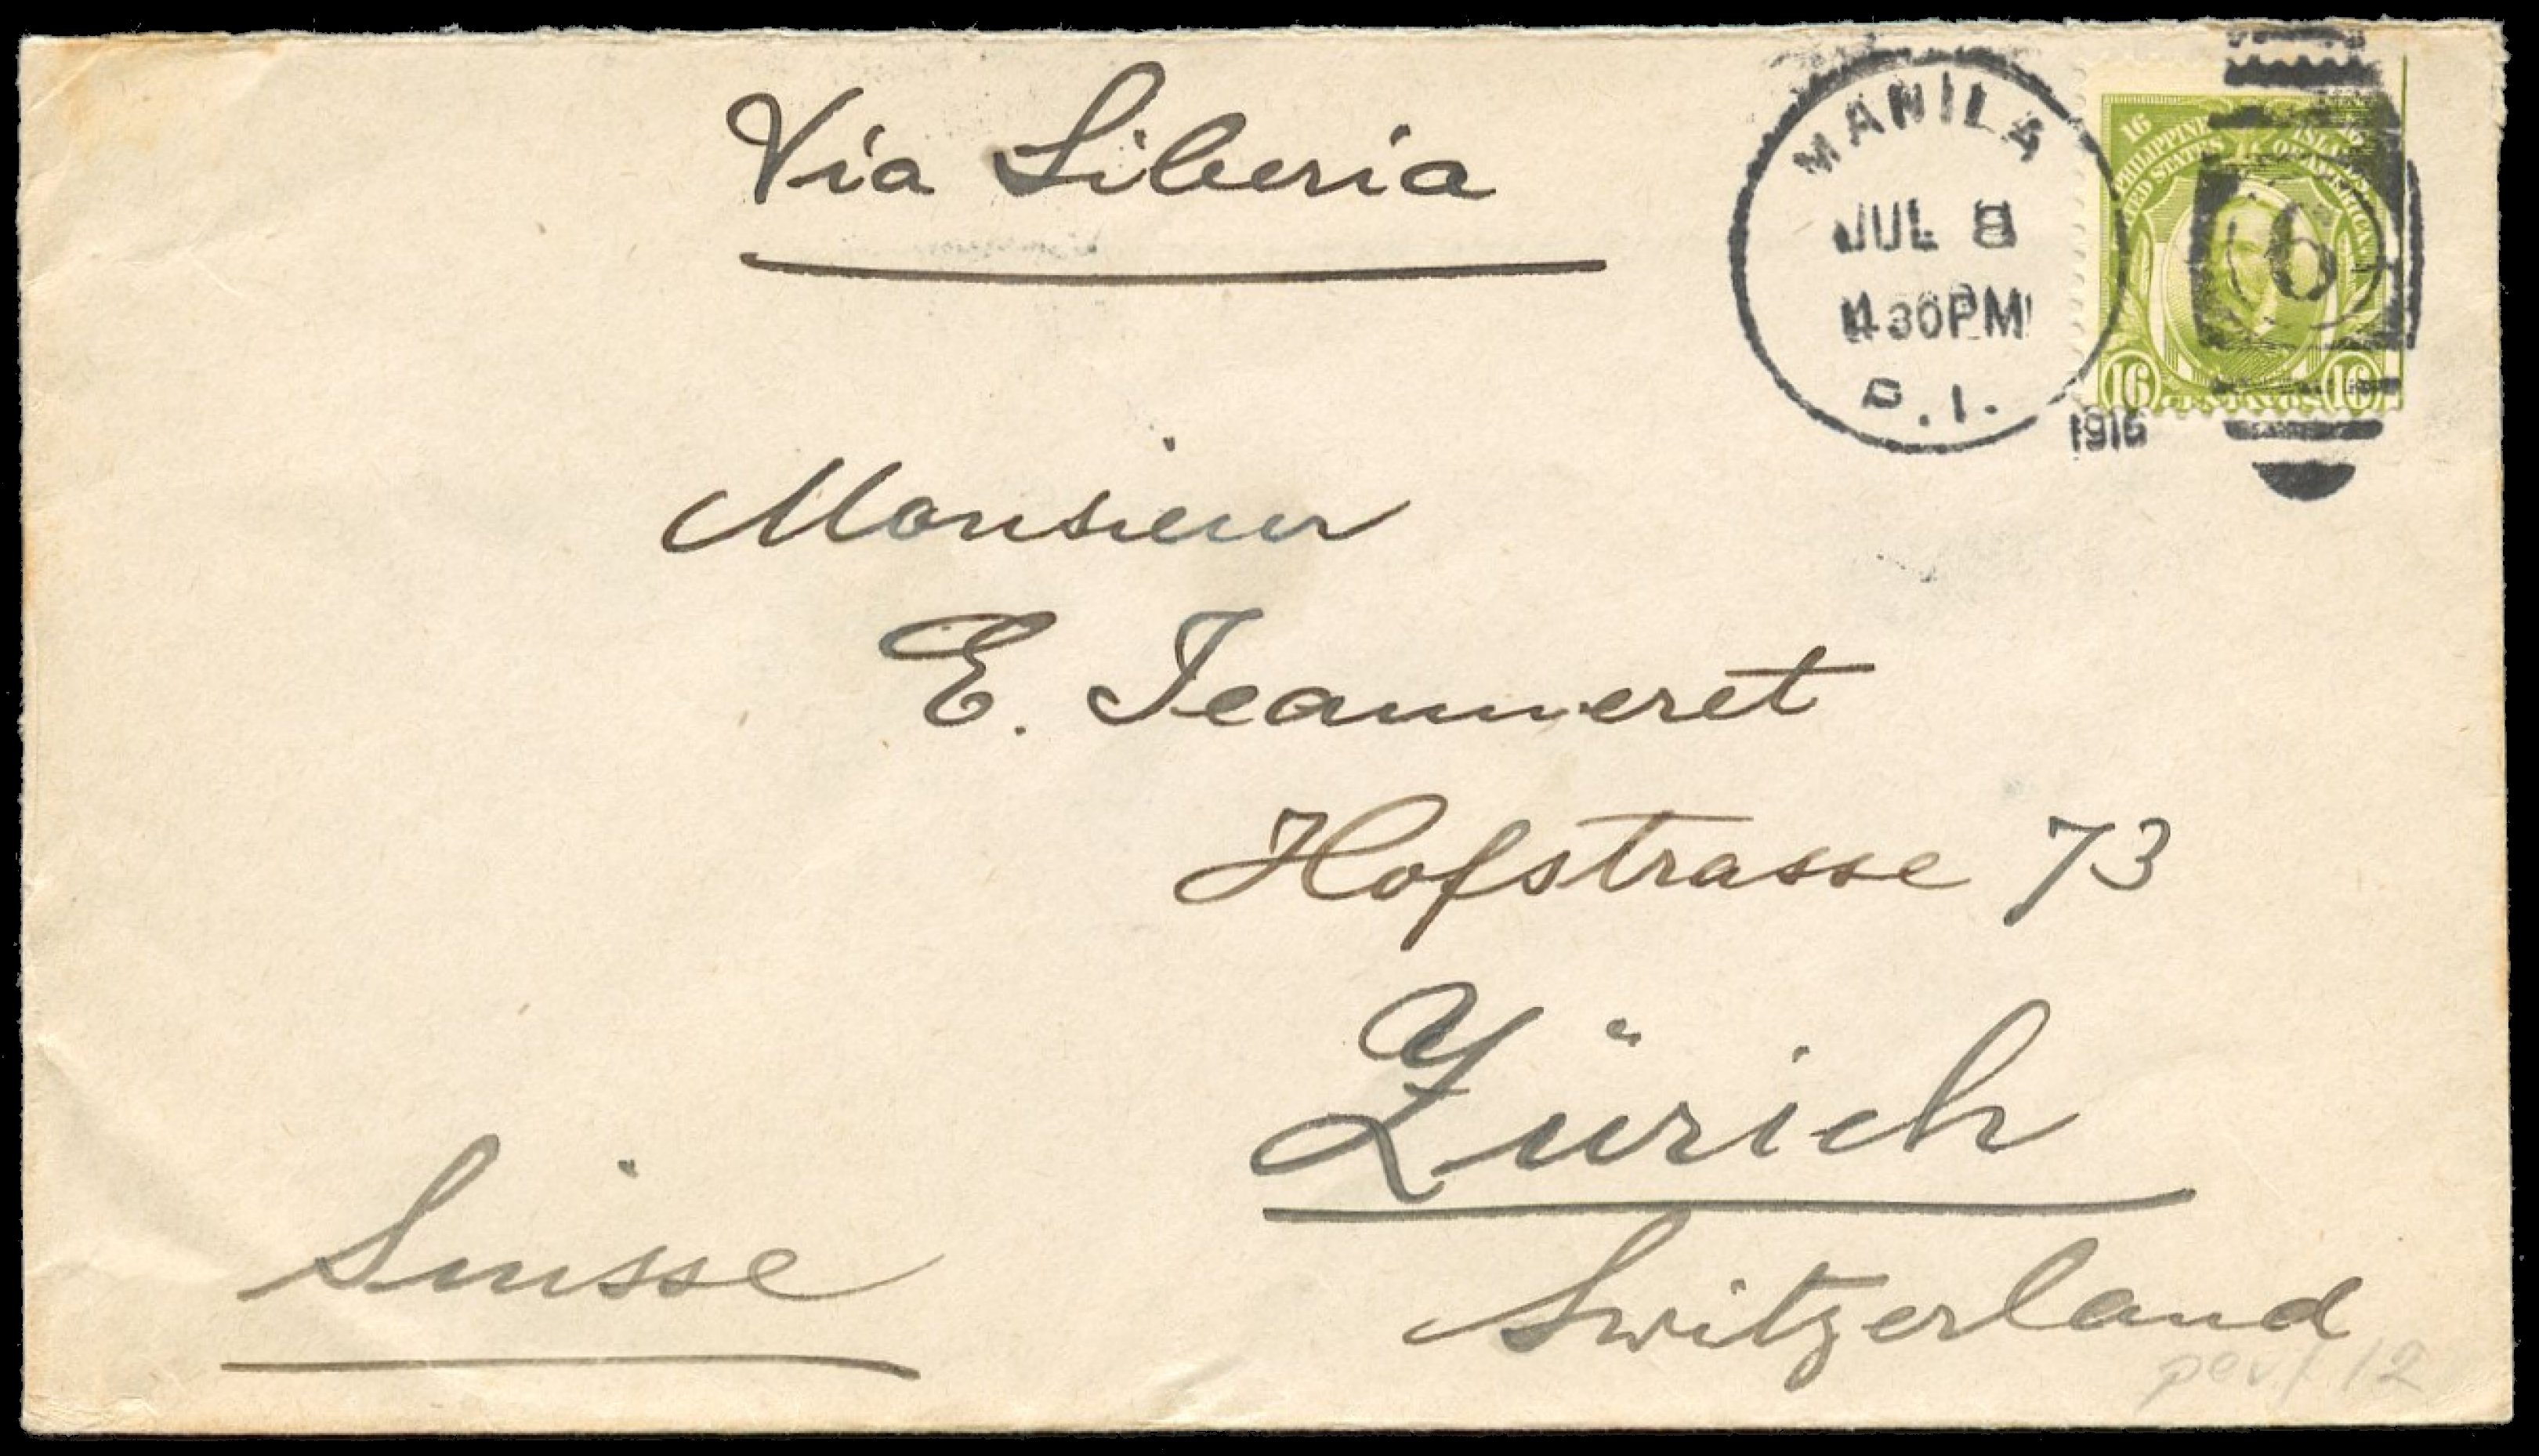 Via Siberia
MANILA
JUL 8
4 30PM
P. I.
1916
16
PHILIPPINE
STATES
OF AMERICA
6
16 16
Monsieur
E. Jeanneret
Hofstrasse 73
Zürich
Suisse
Switzerland
perf 12